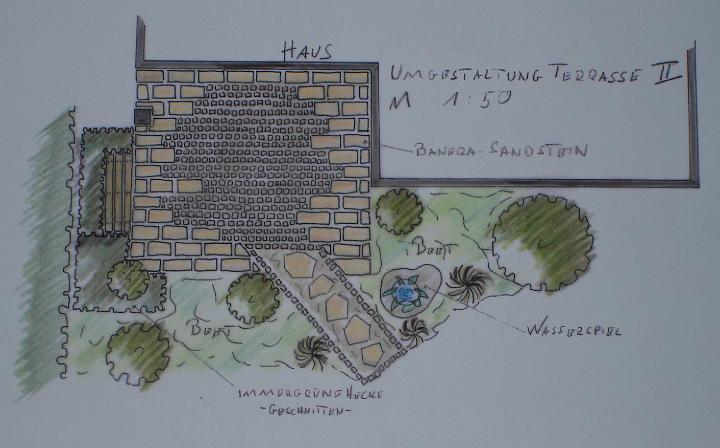 HAUS
UMGESTALTUNG TERRASSE II
M 1:50
BANGRA-SANDSTEIN
BEET
BEET
WASSERSPIEL
IMMERGRÜNE HECKE
-GESCHNITTEN-